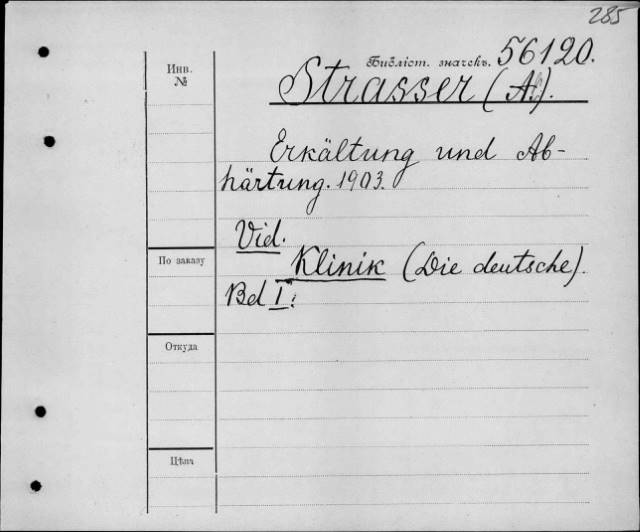 285
Инв.
№
Библіот. значекъ. 56120.
Strasser (A.).
Erkältung und Ab-
härtung. 1903.
Vid.
По заказу
Klinik (Die deutsche).
Bd I.
Откуда
Цѣна